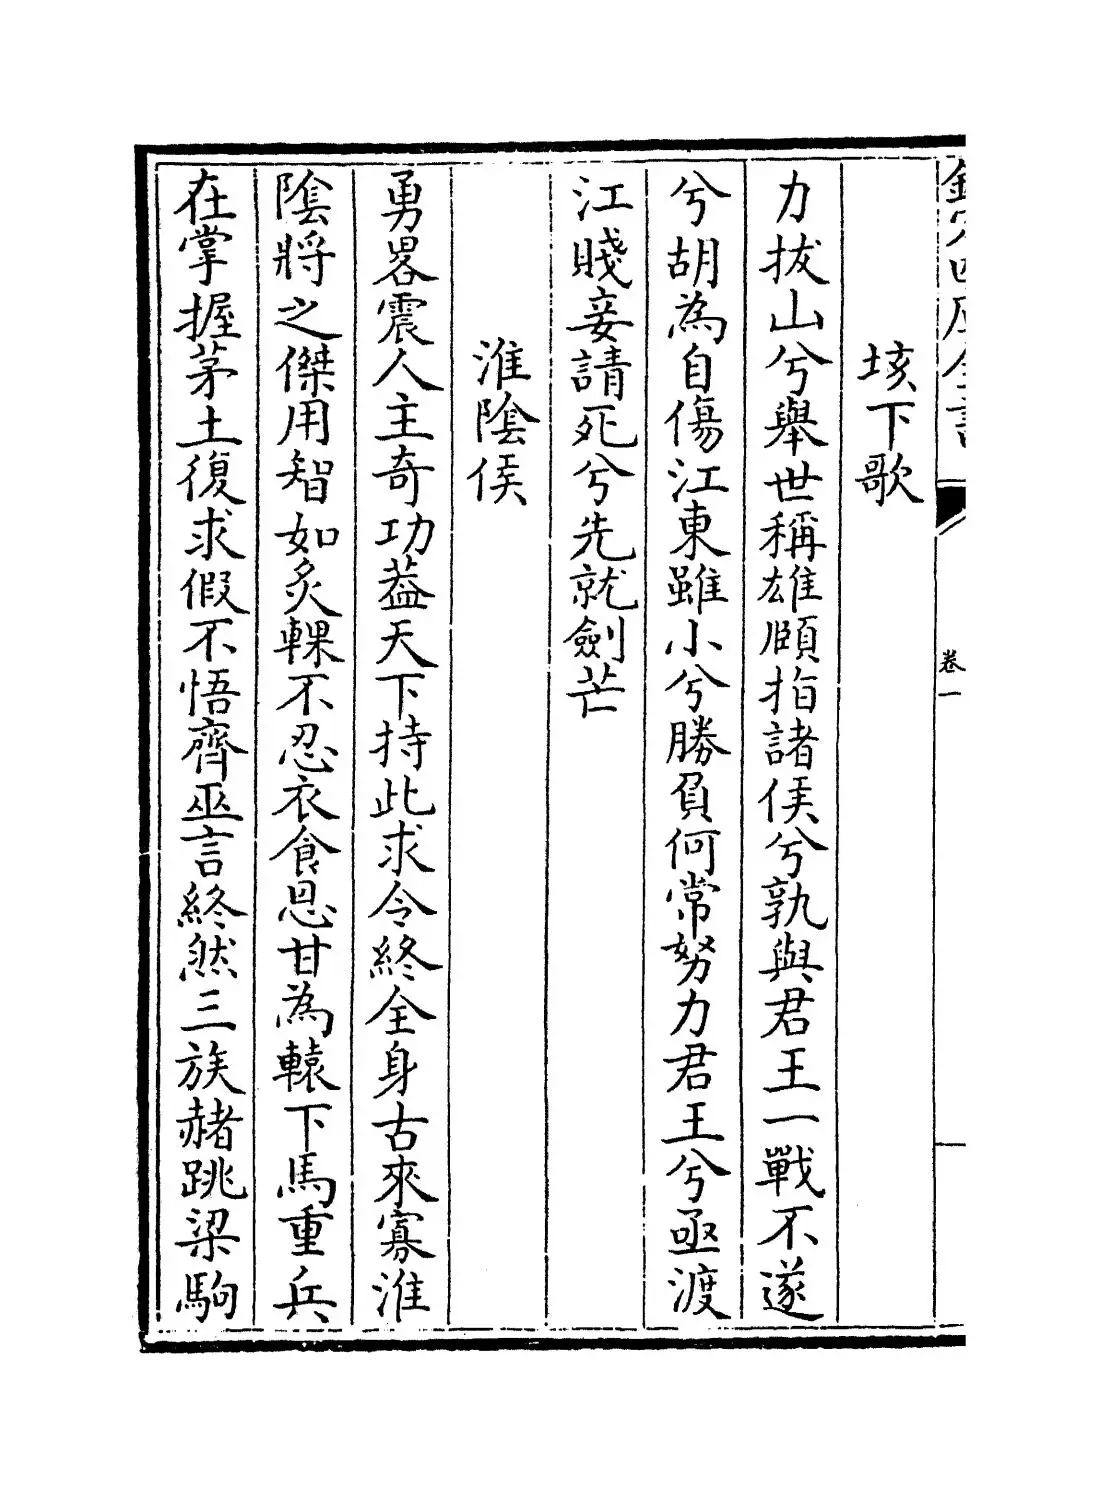 欽定四庫全書
卷一
垓下歌
力拔山兮舉世稱雄頤指諸侯兮孰與君王一戰不遂
兮胡為自傷江東雖小兮勝負何常努力君王兮亟渡
江賤妾請死兮先就劍芒
淮陰侯
勇畧震人主奇功葢天下持此求令終全身古來寡淮
陰將之傑用智如炙輠不忍衣食恩甘為轅下馬重兵
在掌握茅土復求假不悟齊巫言終然三族赭跳梁駒